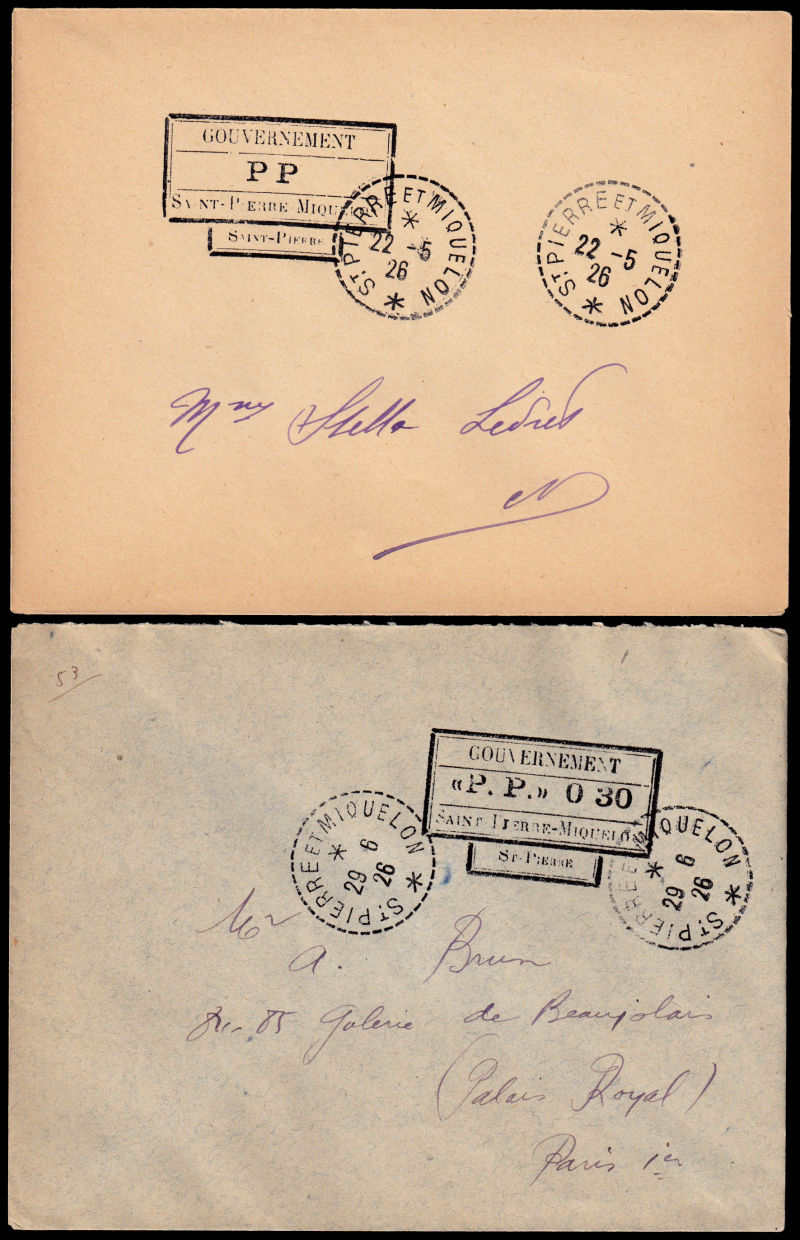 GOUVERNEMENT
PP
SAINT-PIERRE-MIQUELON
SAINT-PIERRE
ST PIERRE ET MIQUELON
22 -5
26
ST PIERRE ET MIQUELON
22 -5
26
Stella
53
GOUVERNEMENT
«P. P.» 0 30
SAINT-PIERRE-MIQUELON
ST-PIERRE
ST PIERRE ET MIQUELON
29 6
26
ST PIERRE ET MIQUELON
29 6
26
Mr
A. Brun
85 Galerie de Beaujolais
(Palais Royal)
Paris 1er